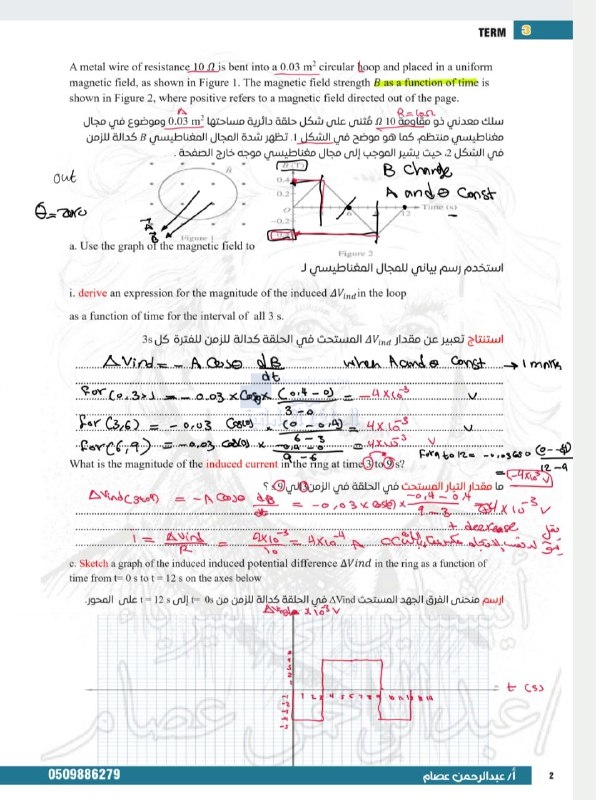 TERM 3
A metal wire of resistance 10 Ω is bent into a 0.03 m² circular hoop and placed in a uniform
magnetic field, as shown in Figure 1. The magnetic field strength B as a function of time is
shown in Figure 2, where positive refers to a magnetic field directed out of the page.
A
R=10Ω
سلك معدني ذو مقاومة 10 Ω مُثنى على شكل حلقة دائرية مساحتها 0.03 m² وموضوع في مجال
مغناطيسي منتظم، كما هو موضح في الشكل 1. تظهر شدة المجال المغناطيسي B كدالة للزمن
في الشكل 2، حيث يشير الموجب إلى مجال مغناطيسي موجه خارج الصفحة.
out
θ=zero
B
Figure 1
B (T)
0.4
0.2
0
-0.2
6
12
Time (s)
Figure 2
B change
A and θ Const
a. Use the graph of the magnetic field to
استخدم رسم بياني للمجال المغناطيسي لـ
i. derive an expression for the magnitude of the induced ΔVind in the loop
as a function of time for the interval of all 3 s.
استنتاج تعبير عن مقدار ΔVind المستحث في الحلقة كدالة للزمن للفترة كل 3s
ΔVind = - A Cosθ dB/dt when A and θ Const → 1 mark
For (0,3) = -0.03 × Cos0 × (0.4-0)/3-0 = -4×10⁻³ V
for (3,6) = -0.03 Cos(0) (0-0.4)/6-3 = 4×10⁻³ V
for (6,9) = -0.03 Cos(0) × -0.4-0/9-6 = 4×10⁻³ V
For 9 to 12 = -0.03
12-9
= (-4×10⁻³ V)
What is the magnitude of the induced current in the ring at time 3 to 9 s?
ما مقدار التيار المستحث في الحلقة في الزمن 3 إلى 9 s ؟
ΔVind (3to9) = -A Cosθ dB/dt = -0.03 × Cos(0) × -0.4-0.4/9-3 = 4×10⁻³ V
+ decrease
I = ΔVind/R = 4×10⁻³/10 = 4×10⁻⁴ A
c. Sketch a graph of the induced induced potential difference ΔVind in the ring as a function of
time from t= 0 s to t = 12 s on the axes below
ارسم منحنى الفرق الجهد المستحث ΔVind في الحلقة كدالة للزمن من t= 0s إلى t = 12 s على المحور.
×10⁻³ V
1 2 3 4 5 6 7 8 9 10 11 12 13 14
t (s)
0509886279
أ/ عبدالرحمن عصام
2